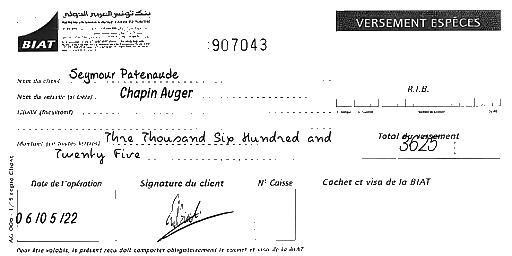 بنك تونس العربي الدولي
BIAT
VERSEMENT ESPÈCES
907043
Nom du client Seymour Patenaude
Nom du verseur (si tiers) Chapin Auger
R.I.B.
Libellé (facultatif)
Montant (en toutes lettres) Thre Thousand Six Hundred and
Twenty Five
Total du versement
3625
Date de l'opération Signature du client N° Caisse Cachet et visa de la BIAT
06/05/22
Pour être valable, le présent reçu doit comporter obligatoirement le cachet et visa de la BIAT